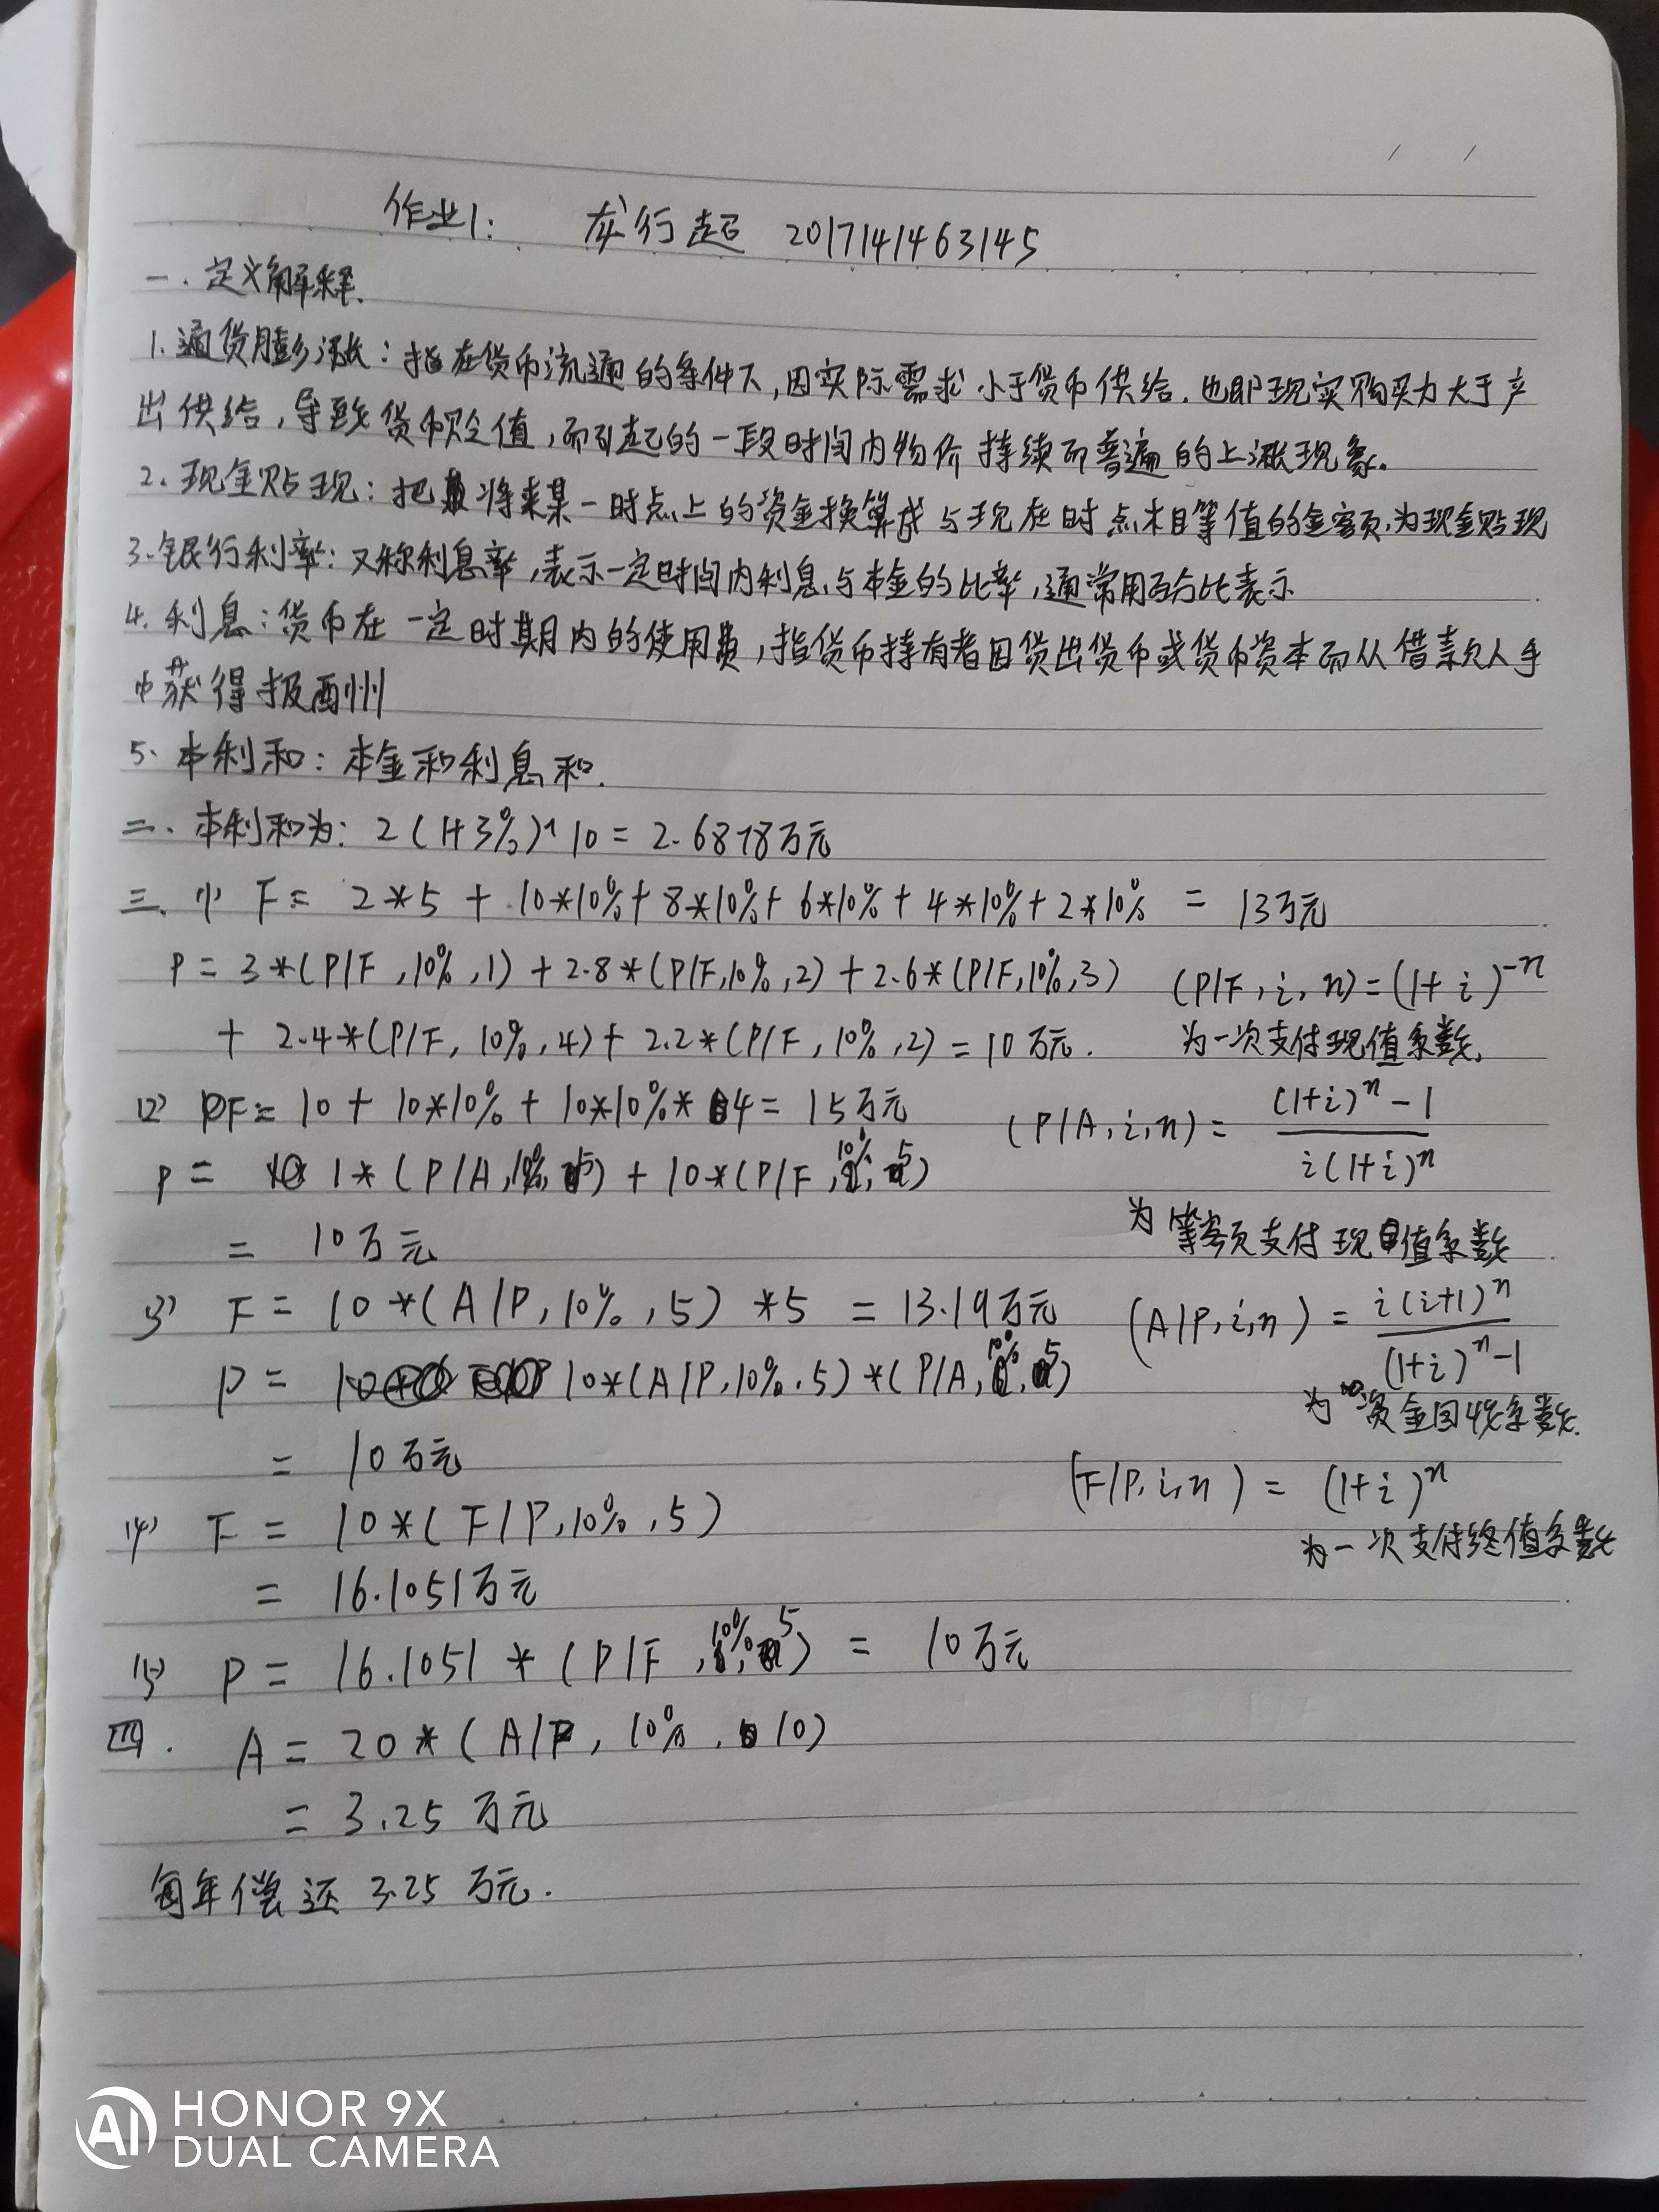 作业1: 龙行起 2017141463145
一. 定义解释.
1. 通货膨涨: 指在货币流通的条件下,因实际需求小于货币供给.也即现实购买力大于产
出供给,导致货币贬值,而引起的一段时间内物价持续而普遍的上涨现象。
2. 现金贴现: 把将来某一时点上的资金换算成与现在时点相等值的金额,为现金贴现
3. 银行利率: 又称利息率,表示一定时间内利息与本金的比率,通常用百分比表示
4. 利息: 货币在一定时期内的使用费,指货币持有者因贷出货币或货币资本而从借款人手
中获得报酬
5. 本利和: 本金和利息和.
二. 本利和为: 2(1+3%)^10 = 2.6878万元
三. (1) F = 2*5 + 10*10% + 8*10% + 6*10% + 4*10% + 2*10% = 13万元
P = 3*(P/F,10%,1) + 2.8*(P/F,10%,2) + 2.6*(P/F,10%,3) (P/F,i,n)=(1+i)^-n
+ 2.4*(P/F,10%,4) + 2.2*(P/F,10%,2) = 10万元. 为一次支付现值系数.
(2) F = 10 + 10*10% + 10*10%*4 = 15万元 (P/A,i,n) = ((1+i)^n-1)/(i(1+i)^n)
P = 1*(P/A,10%,5) + 10*(P/F,10%,5)
= 10万元 为等额支付现值系数
(3) F = 10*(A/P,10%,5)*5 = 13.19万元 (A/P,i,n) = (i(i+1)^n)/((1+i)^n-1)
P = 10*(A/P,10%,5)*(P/A,10%,5) 为资金回收系数.
= 10万元
(4) F = 10*(F/P,10%,5) (F/P,i,n) = (1+i)^n
= 16.1051万元 为一次支付终值系数
(5) P = 16.1051*(P/F,10%,5) = 10万元
四. A = 20*(A/P,10%,10)
= 3.25万元
每年偿还 3.25万元.
HONOR 9X
DUAL CAMERA